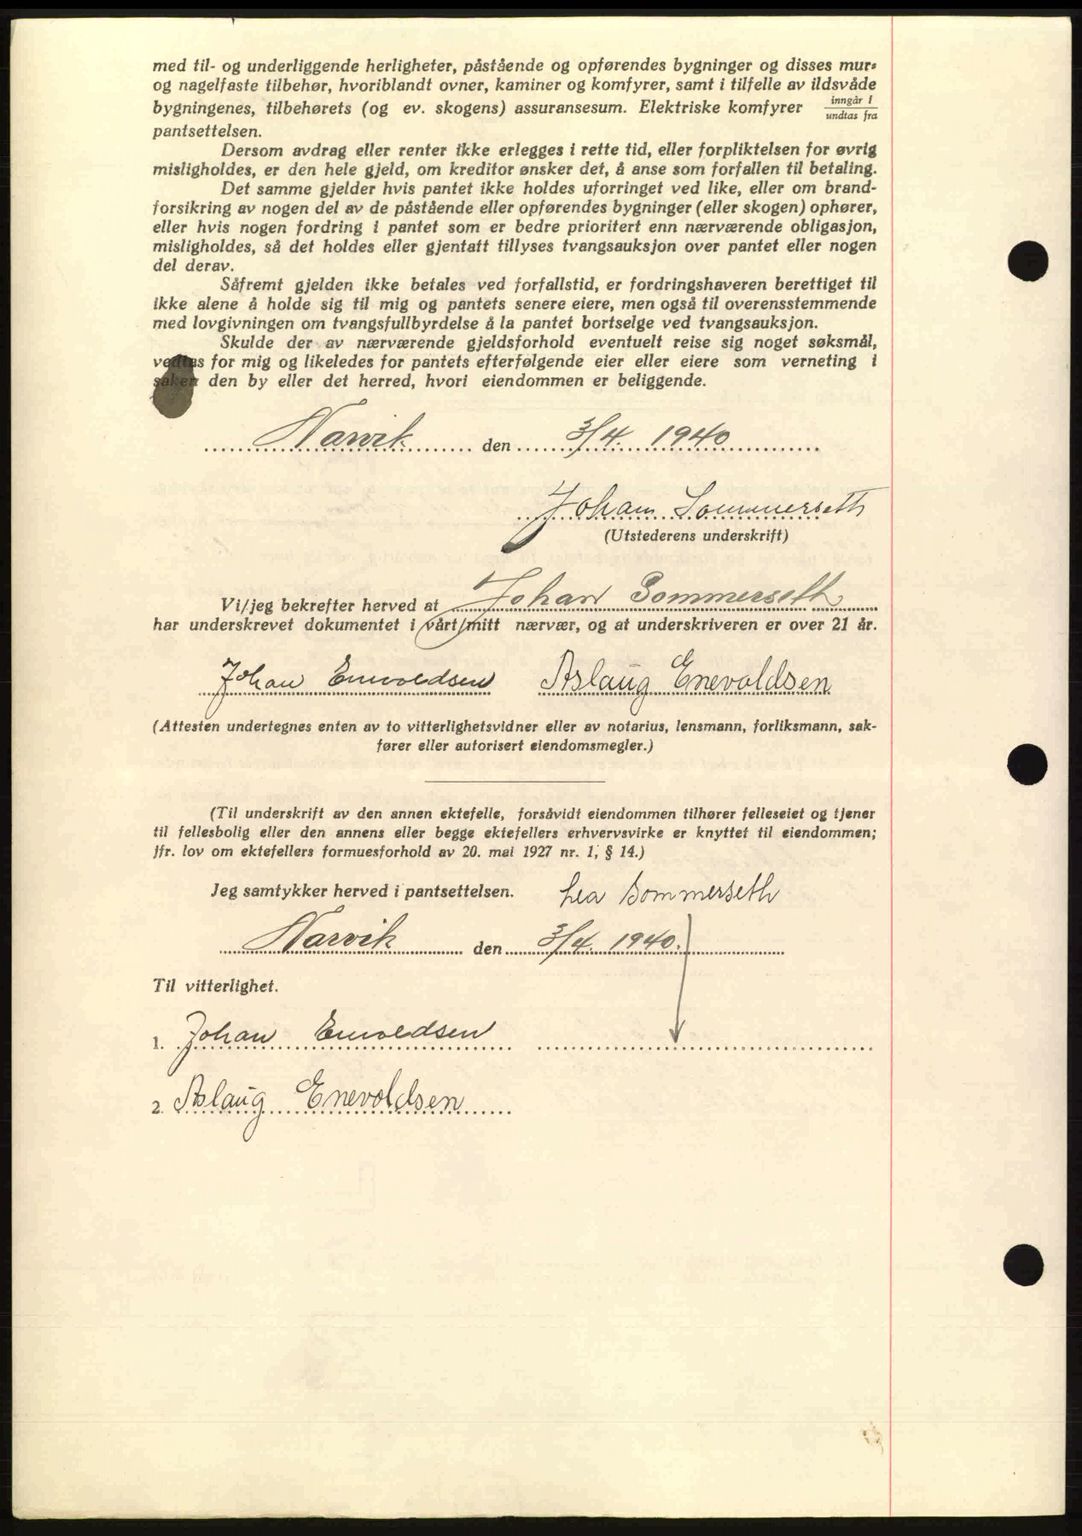 med til- og underliggende herligheter, påstående og opførendes bygninger og disses mur-
og nagelfaste tilbehør, hvoriblandt ovner, kaminer og komfyrer, samt i tilfelle av ildsvåde
bygningenes, tilbehørets (og ev. skogens) assuransesum. Elektriske komfyrer inngår i / undtas fra
pantsettelsen.
Dersom avdrag eller renter ikke erlegges i rette tid, eller forpliktelsen for øvrig
misligholdes, er den hele gjeld, om kreditor ønsker det, å anse som forfallen til betaling.
Det samme gjelder hvis pantet ikke holdes uforringet ved like, eller om brand-
forsikring av nogen del av de påstående eller opførendes bygninger (eller skogen) ophører,
eller hvis nogen fordring i pantet som er bedre prioritert enn nærværende obligasjon,
misligholdes, så det holdes eller gjentatt tillyses tvangsauksjon over pantet eller nogen
del derav.
Såfremt gjelden ikke betales ved forfallstid, er fordringshaveren berettiget til
ikke alene å holde sig til mig og pantets senere eiere, men også til overensstemmende
med lovgivningen om tvangsfullbyrdelse å la pantet bortselge ved tvangsauksjon.
Skulde der av nærværende gjeldsforhold eventuelt reise sig noget søksmål,
vedtas for mig og likeledes for pantets efterfølgende eier eller eiere som verneting i
saken den by eller det herred, hvori eiendommen er beliggende.
Narvik den 3/4. 1940
Johan Sommerseth
(Utstederens underskrift)
Vi/jeg bekrefter herved at Johan Sommerseth
har underskrevet dokumentet i vårt/mitt nærvær, og at underskriveren er over 21 år.
Johan Enevoldsen Aslaug Enevoldsen
(Attesten undertegnes enten av to vitterlighetsvidner eller av notarius, lensmann, forliksmann, sak-
fører eller autorisert eiendomsmegler.)
(Til underskrift av den annen ektefelle, forsåvidt eiendommen tilhører felleseiet og tjener
til fellesbolig eller den annens eller begge ektefellers erhvervsvirke er knyttet til eiendommen;
jfr. lov om ektefellers formuesforhold av 20. mai 1927 nr. 1, § 14.)
Jeg samtykker herved i pantsettelsen. Lea Sommerseth
Narvik den 3/4. 1940.
Til vitterlighet.
1. Johan Enevoldsen
2. Aslaug Enevoldsen